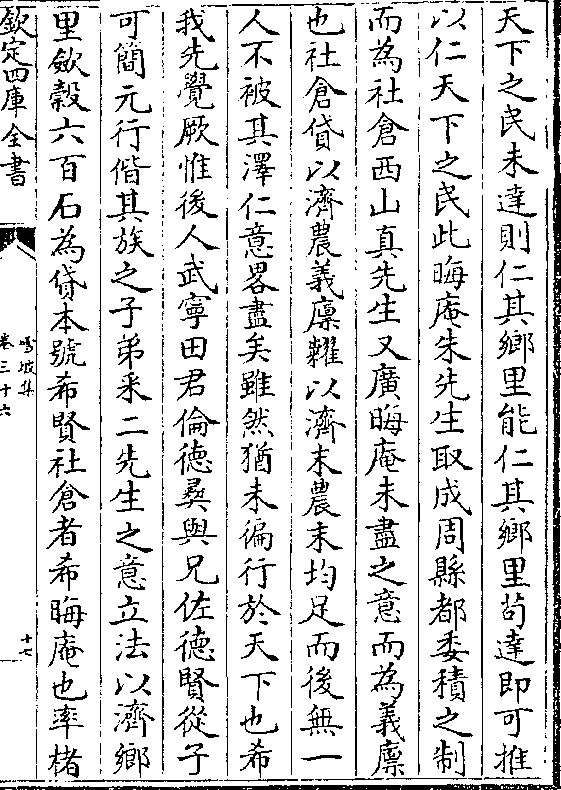 天下之民未達則仁其鄉里能仁其鄉里茍達即可推
以仁天下之民此晦庵朱先生取成周縣都委積之制
而為社倉西山真先生又廣晦庵未盡之意而為義廪
也社倉貸以濟農義廪糶以濟末農末均足而後無一
人不被其澤仁意畧盡矣雖然猶未徧行於天下也希
我先覺厥惟後人武寧田君倫德彛與兄佐德賢從子
可簡元行偕其族之子弟釆二先生之意立法以濟鄉
里歛穀六百石為貸本號希賢社倉者希晦庵也率楮
欽定四庫全書
鶴坡集
卷三十六
十七